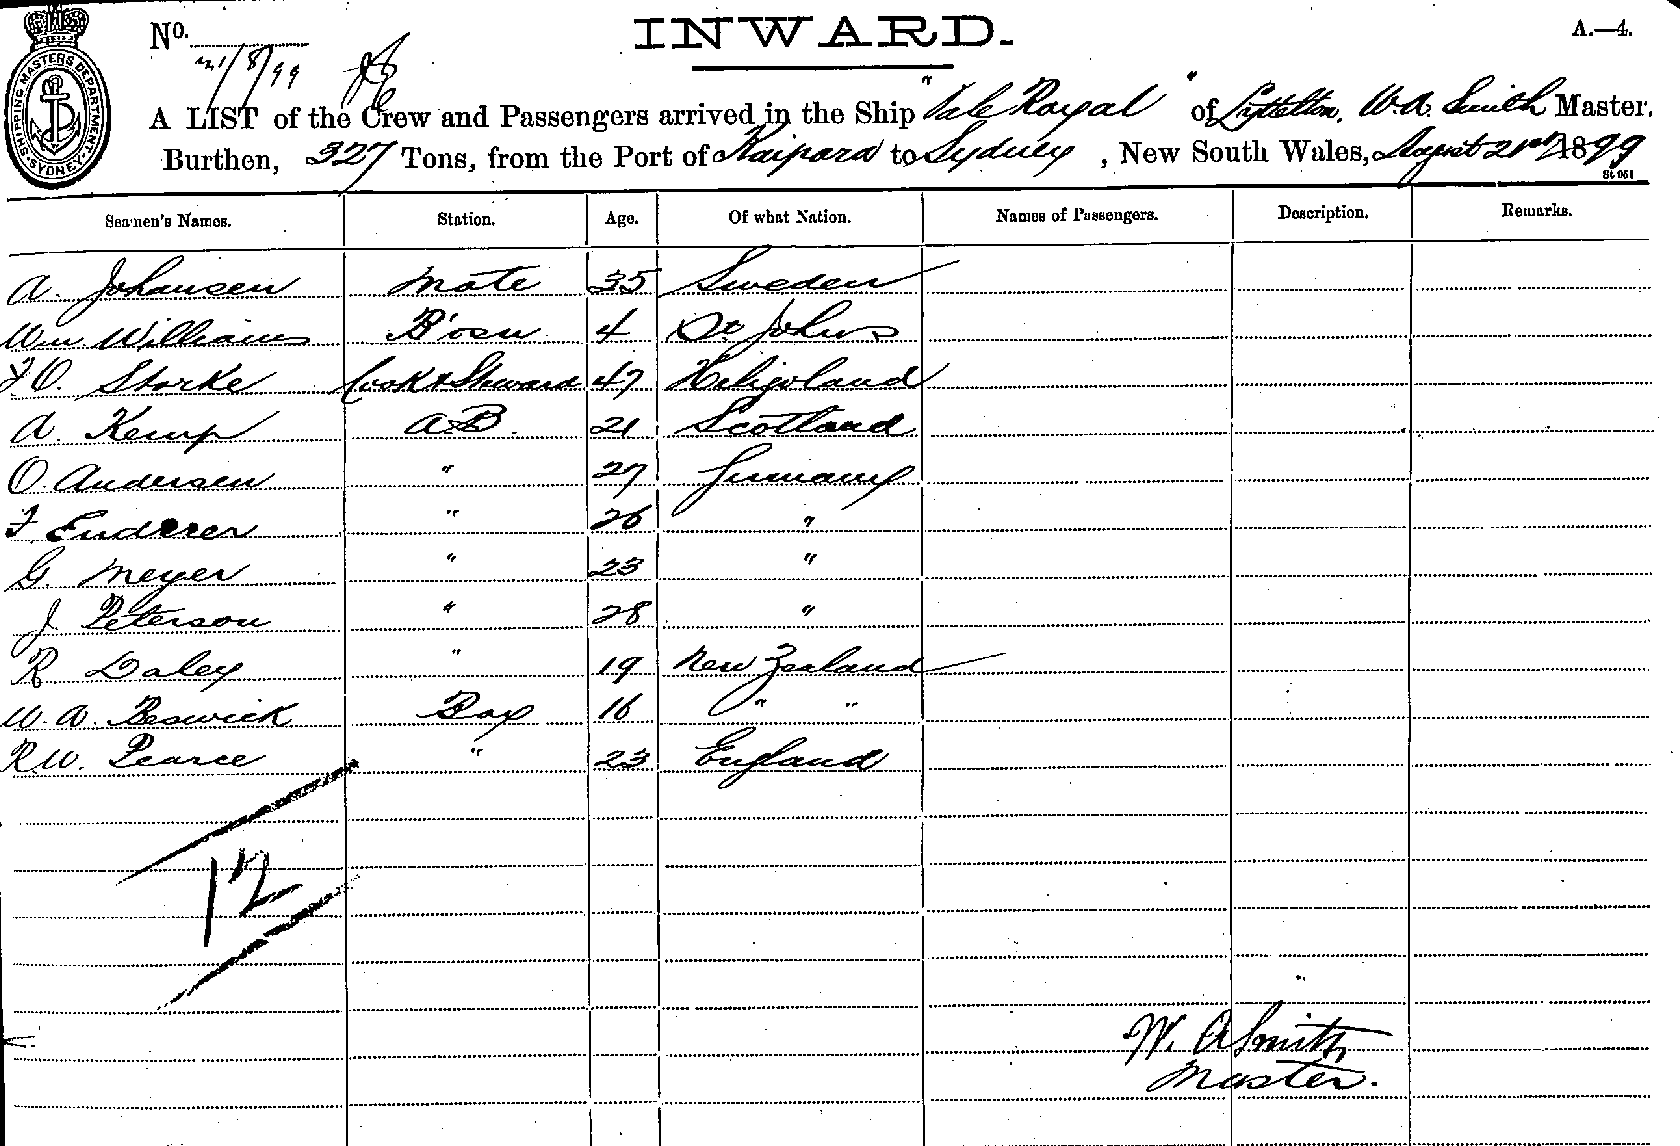 SHIPPING MASTERS DEPARTMENT SYDNEY
No.
INWARD.
A.—4.
21/8/99
A LIST of the Crew and Passengers arrived in the Ship "Vale Royal" of Lyttelton, W. A. Smith Master,
Burthen, 327 Tons, from the Port of Kaipara to Sydney, New South Wales, August 21st 1899
St 061
Seamen's Names. Station. Age. Of what Nation. Names of Passengers. Description. Remarks.
A. Johansen Mate 35 Sweden
Wm Williams B'osn 4 St Johns
F O. Storke Cook & Steward 47 Heligoland
A. Kemp AB. 21 Scotland
O. Andersen " 27 Germany
F Enderer " 26 "
G. Meyer " 23 "
J Peterson " 28 "
R Daley " 19 New Zealand
W. A. Beswick Boy 16 " "
R. W. Pearce " 23 England
12
W. A Smith
Master.